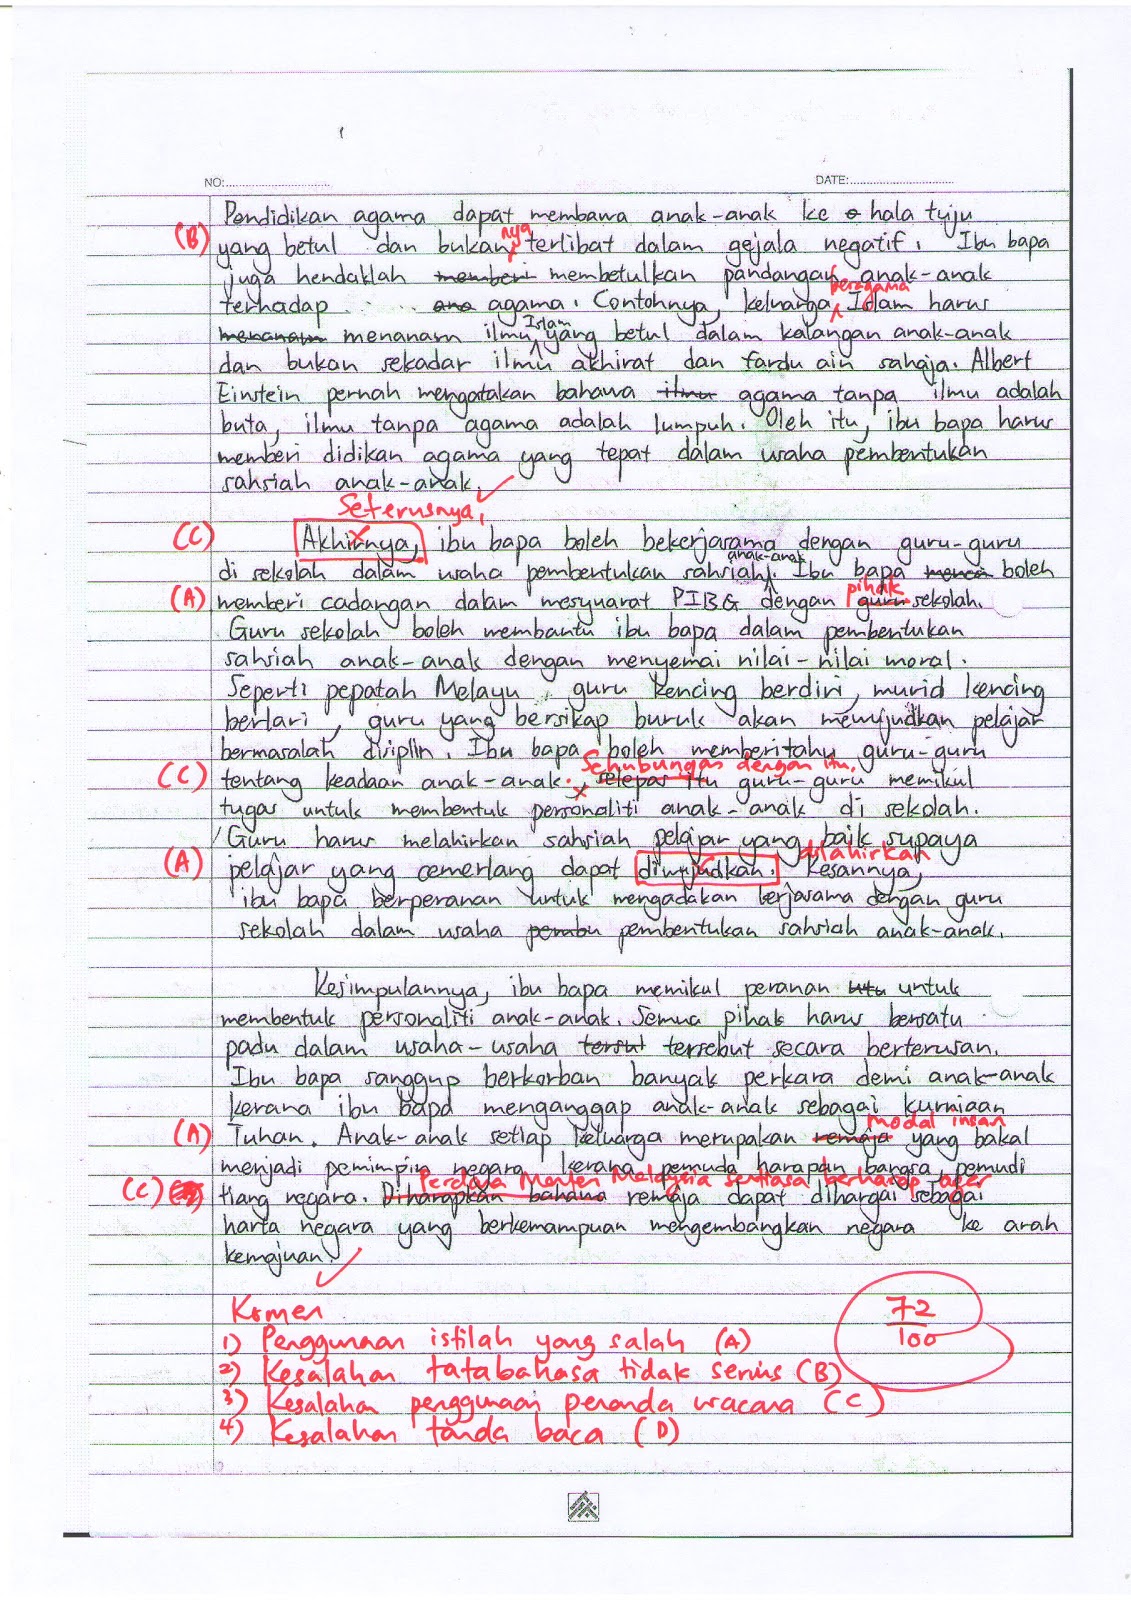 NO:
DATE:
Pendidikan agama dapat membawa anak-anak ke hala tuju
(B) yang betul dan bukan nya terlibat dalam gejala negatif. Ibu bapa
juga hendaklah memberi membetulkan pandangan anak-anak
beragama
terhadap ana agama. Contohnya, keluarga Islam harus
Islam
menanam menanam ilmu yang betul dalam kalangan anak-anak
dan bukan sekadar ilmu akhirat dan fardu ain sahaja. Albert
Einstein pernah mengatakan bahawa ilmu agama tanpa ilmu adalah
buta, ilmu tanpa agama adalah lumpuh. Oleh itu, ibu bapa harus
memberi didikan agama yang tepat dalam usaha pembentukan
sahsiah anak-anak.
Seterusnya,
(C) Akhirnya, ibu bapa boleh bekerjasama dengan guru-guru
anak-anak
di sekolah dalam usaha pembentukan sahsiah. Ibu bapa boleh
pihak
(A) memberi cadangan dalam mesyuarat PIBG dengan guru sekolah.
Guru sekolah boleh membantu ibu bapa dalam pembentukan
sahsiah anak-anak dengan menyemai nilai-nilai moral.
Seperti pepatah Melayu, guru kencing berdiri, murid kencing
berlari, guru yang bersikap buruk akan mewujudkan pelajar
bermasalah disiplin. Ibu bapa boleh memberitahu guru-guru
Sehubungan dengan itu,
(C) tentang keadaan anak-anak, selepas itu guru-guru memikul
tugas untuk membentuk personaliti anak-anak di sekolah.
Guru harus melahirkan sahsiah pelajar yang baik supaya
dilahirkan
(A) pelajar yang cemerlang dapat diwujudkan. Kesannya,
ibu bapa berperanan untuk mengadakan kerjasama dengan guru
sekolah dalam usaha pembentukan sahsiah anak-anak.
Kesimpulannya, ibu bapa memikul peranan untuk
membentuk personaliti anak-anak. Semua pihak harus bersatu
padu dalam usaha-usaha tersebut secara berterusan.
Ibu bapa sanggup berkorban banyak perkara demi anak-anak
kerana ibu bapa menganggap anak-anak sebagai kurniaan
modal insan
(A) Tuhan. Anak-anak setiap keluarga merupakan remaja yang bakal
menjadi pemimpin negara kerana pemuda harapan bangsa, pemudi
Perdana Menteri Malaysia sentiasa berharap agar
(C) tiang negara. Diharapkan bahawa remaja dapat dihargai sebagai
harta negara yang berkemampuan mengembangkan negara ke arah
kemajuan.
Komen
1) Penggunaan istilah yang salah (A)
2) Kesalahan tatabahasa tidak serius (B)
3) Kesalahan penggunaan penanda wacana (C)
4) Kesalahan tanda baca (D)
72
100